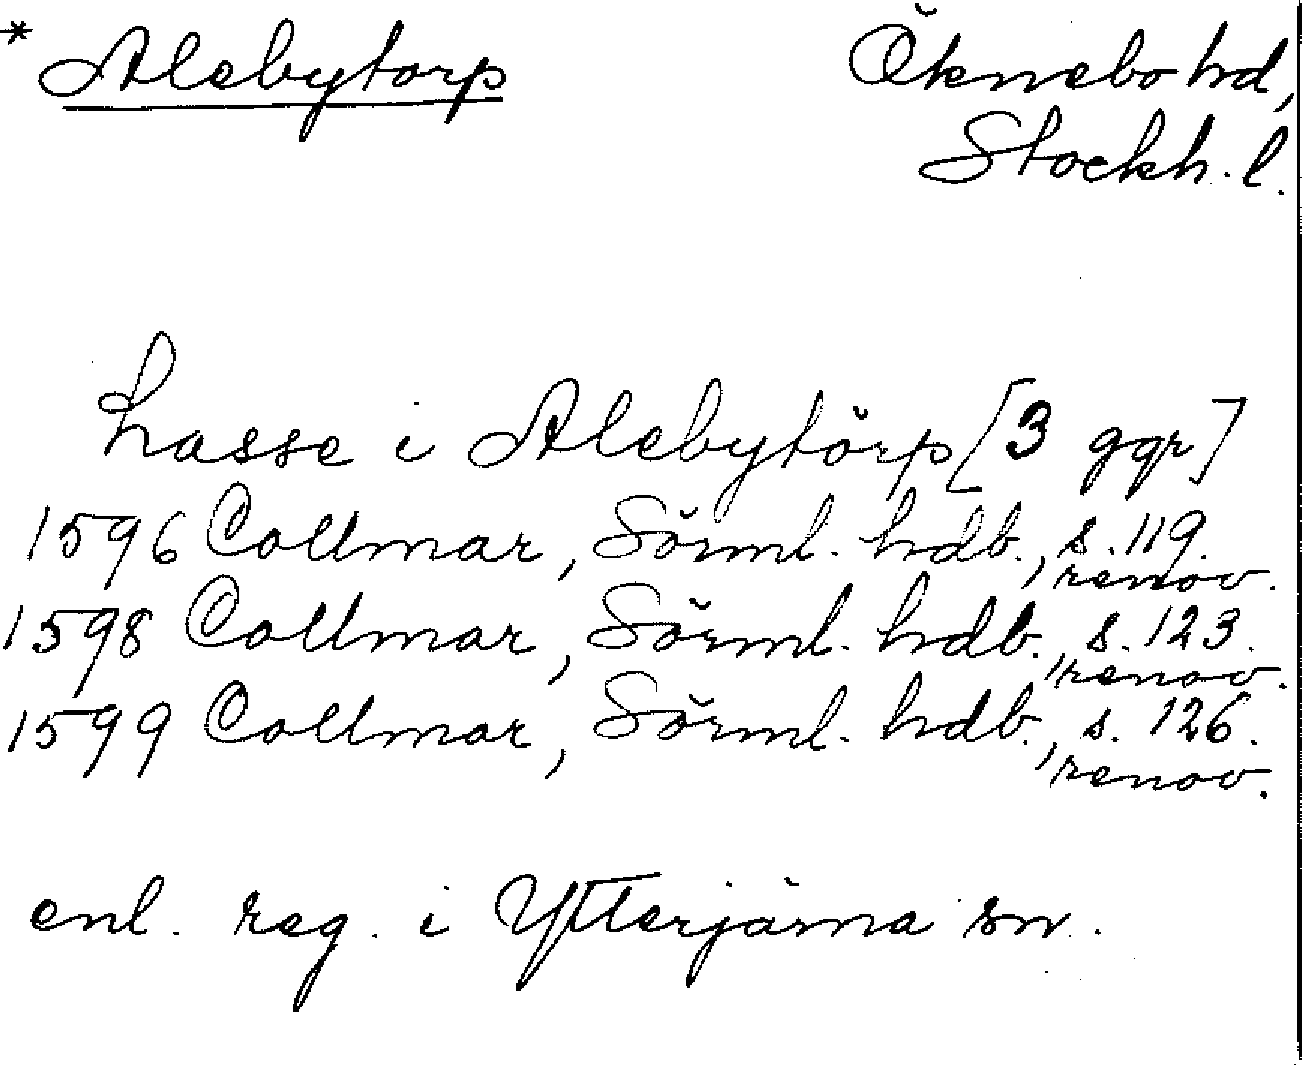 * Alebytorp
Öknebo hd,
Stockh. l.
hasse i Alebytörp [3 ggr]
1596 Collmar, Sörml. hdb., s. 119.
renov.
1598 Collmar, Sörml. hdb., s. 123.
renov.
1599 Collmar, Sörml. hdb., s. 126.
renov.
enl. reg. i Ytterjärna sn.